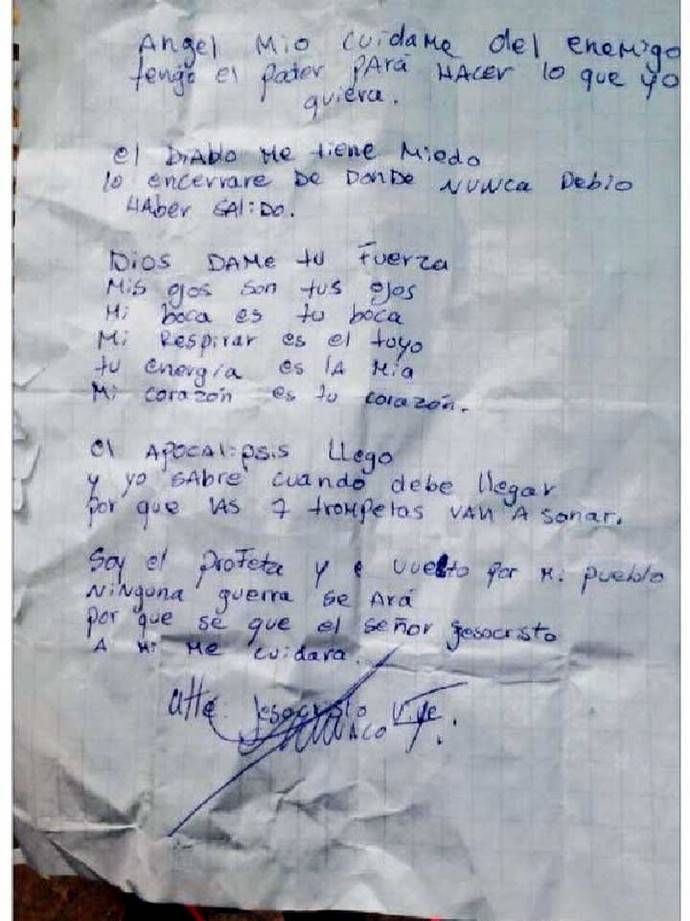 Angel Mio cuidame del enemigo
tengo el pater pará HACER lo que yo
quiera.
el DiAblo me tiene Miedo
lo encerrare De DonDe NUNCA Debio
HAber SAliDo.
Dios DAMe tu Fuerza
Mis ojos son tus ojos
Mi boca es tu boca
Mi Respirar es el tuyo
tu energia es lA Mia
Mi corazón es tu corazón.
el APOCAlipsis Llego
y yo SAbre cuando debe llegar
por que lAS 7 trompetas VAN A sonar.
Soy el profeta y e vuelto por Mi pueblo
NiNguna guerra se ArÁ
por que se que el señor Jesocristo
A Mi Me cuidara.
Atte Jesocristo Vive.